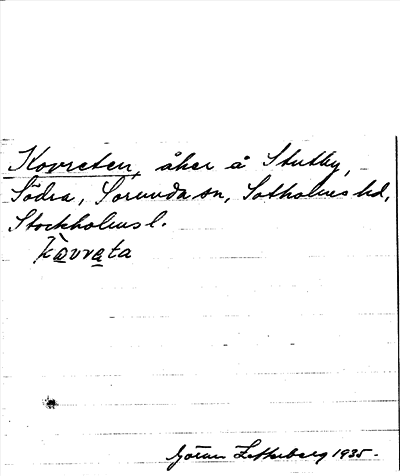 Kovreten, åker å Stutby,
Södra, Sorunda sn, Sotholms hd,
Stockholms l.
kàvrata
Göran Zetterberg 1935.